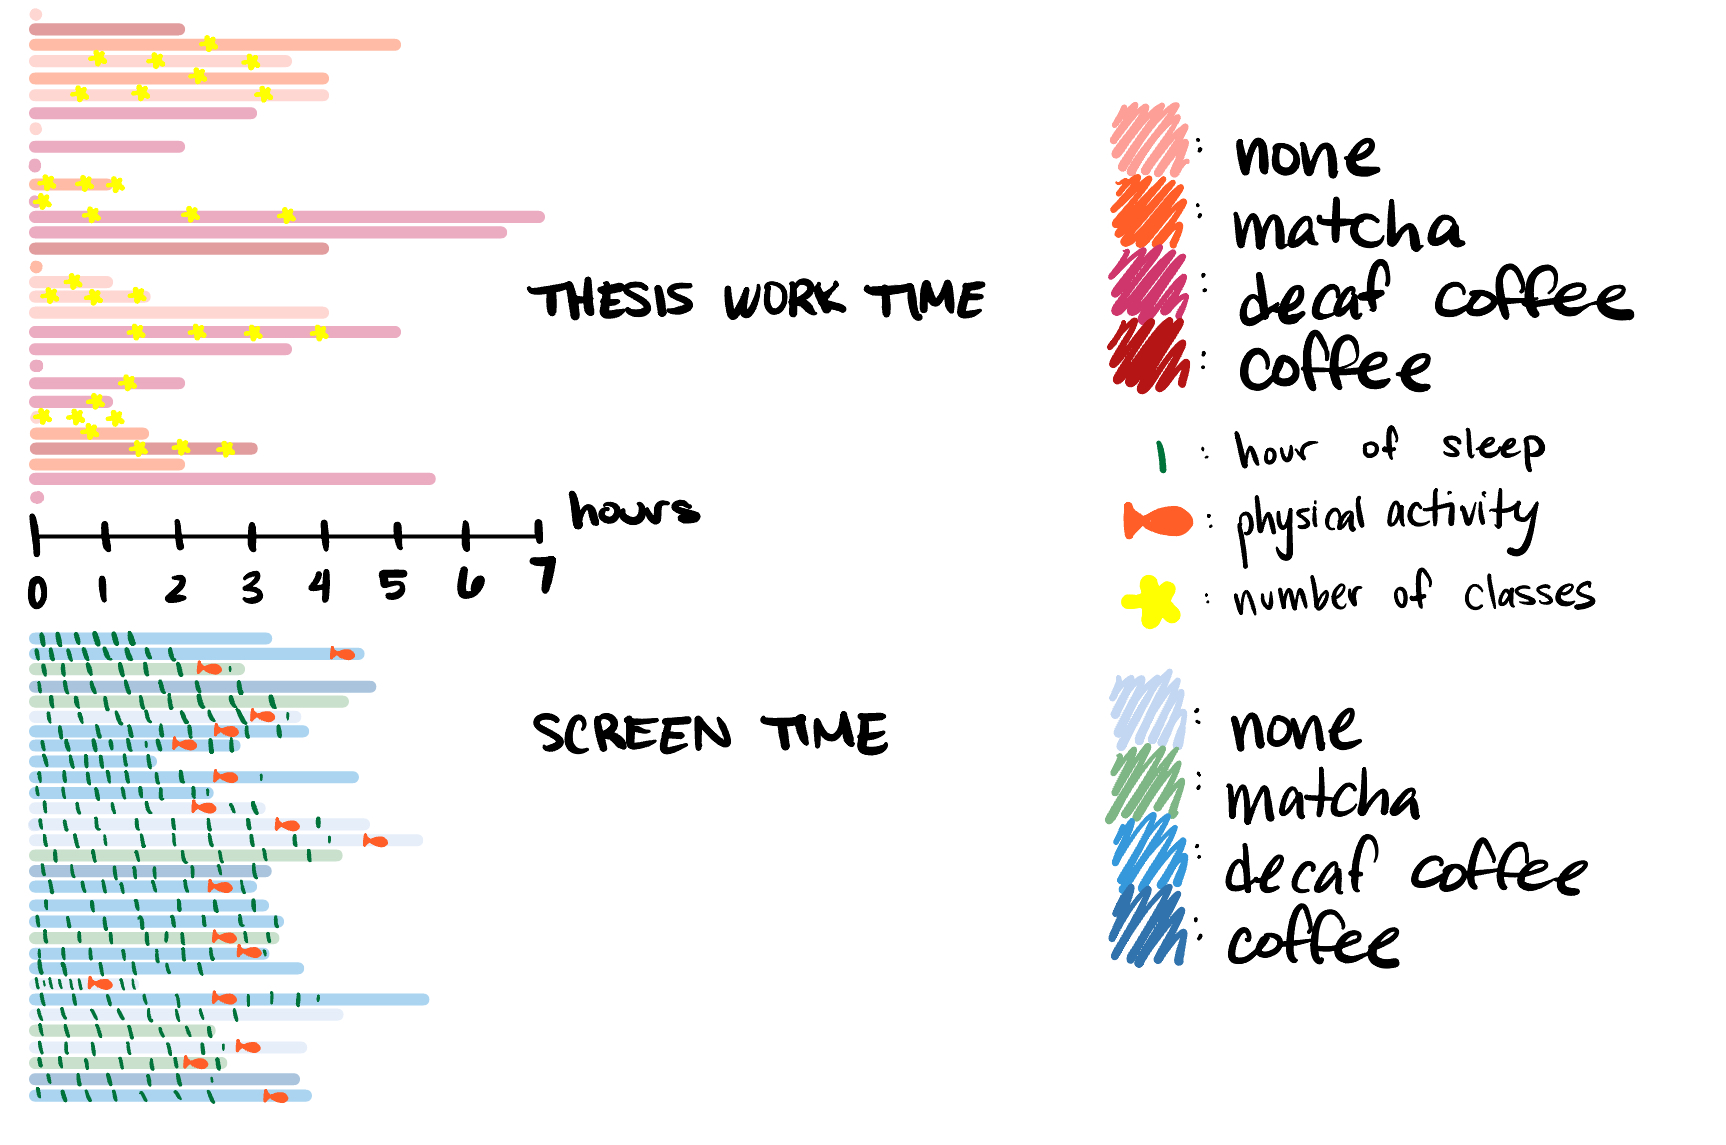 THESIS WORK TIME
hours
0 1 2 3 4 5 6 7
SCREEN TIME
: none
: matcha
: decaf coffee
: coffee
: hour of sleep
: physical activity
: number of classes
: none
: matcha
: decaf coffee
: coffee